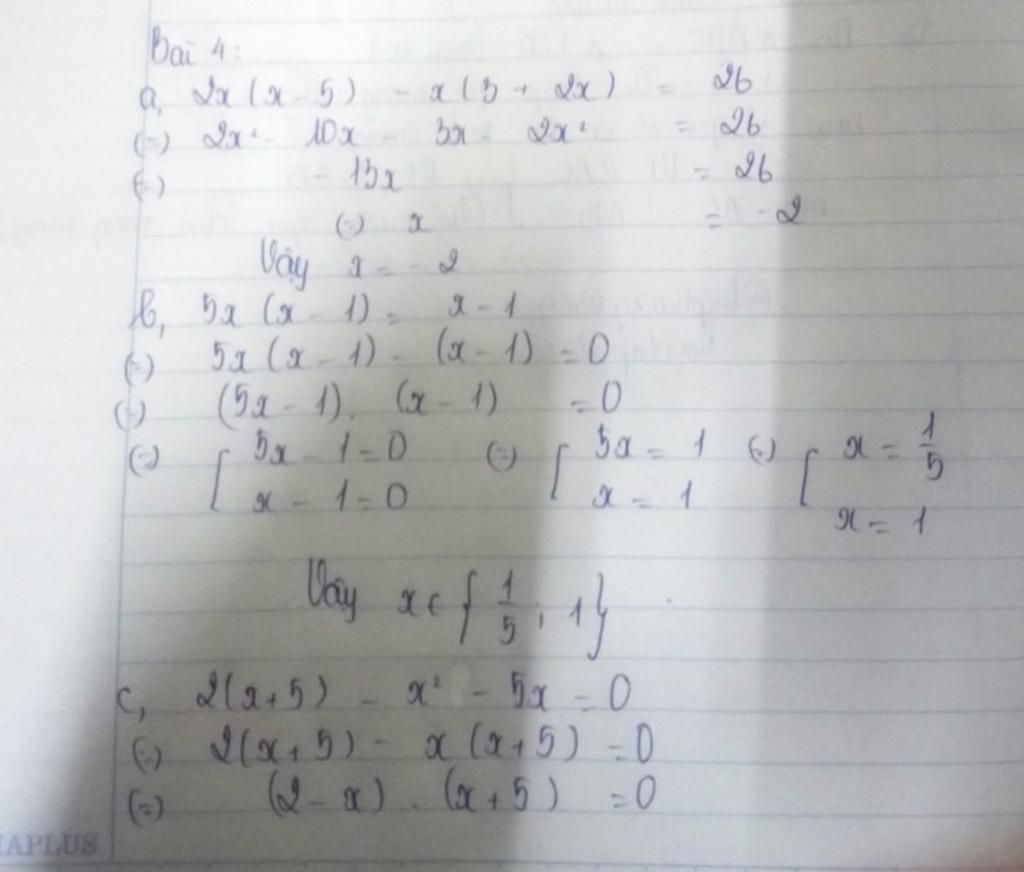 Bài 4:
a, 2x(x - 5) - x(3 + 2x) = 26
(=) 2x² - 10x - 3x 2x² = 26
(=) - 13x = 26
(=) x = -2
Vậy x = -2
b, 5x (x - 1) = x - 1
(=) 5x (x - 1) - (x - 1) = 0
(=) (5x - 1). (x - 1) = 0
(=) [ 5x - 1 = 0 (=) [ 5x = 1 (=) [ x = 1/5
x - 1 = 0 x = 1 x = 1
Vậy x ∈ { 1/5 ; 1 }
c, 2(x+5) - x² - 5x = 0
(=) 2(x+5) - x (x+5) = 0
(=) (2 - x) . (x+5) = 0
APLUS